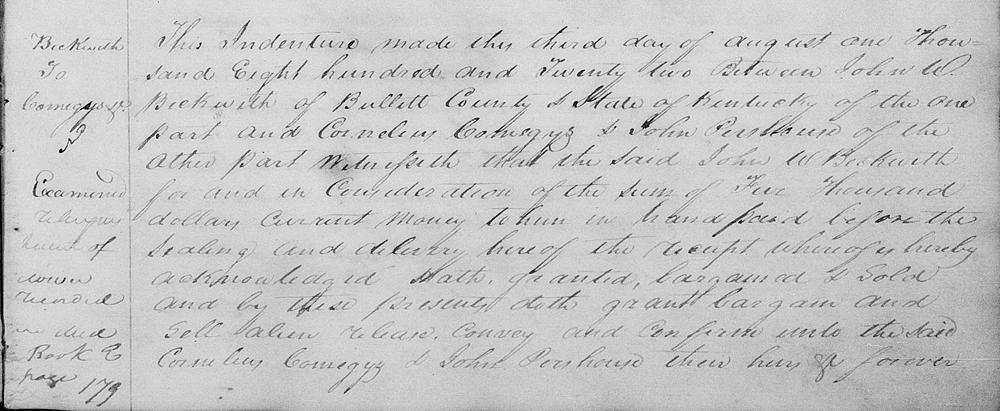 Beckwith
To
Comegys &c
Examined
Relinquish
ment of
dower
recorded
in deed
Book E
page 179
This Indenture made this third day of august one Thou=
sand Eight hundred and Twenty two Between John W.
Beckwith of Bullett County & State of Kentucky of the one
part and Cornelius Comegys & John Pershouse of the
other part Witnesseth that the said John W Beckwith
for and in Consideration of the sum of Five Thousand
dollars Current Money to him in hand paid before the
Sealing and delivery here of the receipt whereof is hereby
acknowledged Hath, granted, bargained & Sold
and by these presents doth grant bargain and
Sell alien release, Convey and Confirm unto the said
Cornelius Comegys & John Pershouse their heirs &c forever